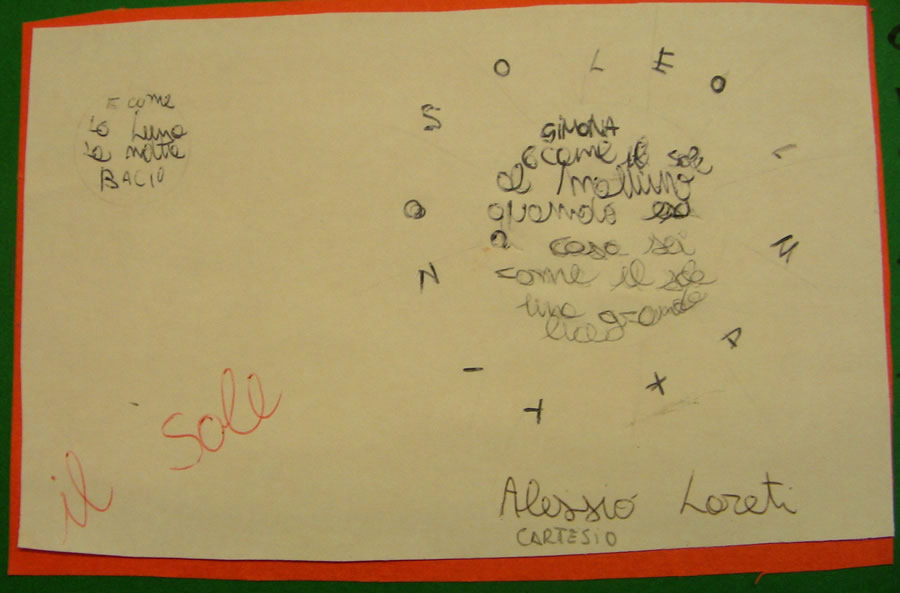 E come
la Luna
la notte
BACIO
S O L E O L M A T T I N O
SIMONA
come il sole
al mattino
quando
a casa sei
come il sole
una grande
il Sole
Alessio Loreti
CARTESIO